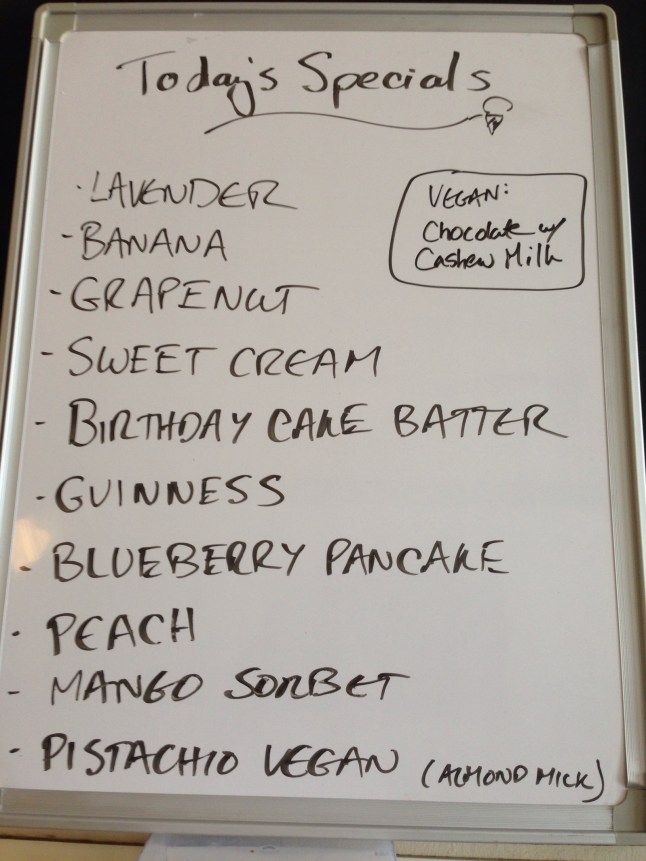 Today's Specials
· LAVENDER
VEGAN:
Chocolate w/
Cashew Milk
- BANANA
- GRAPENUT
- SWEET CREAM
- BIRTHDAY CAKE BATTER
- GUINNESS
- BLUEBERRY PANCAKE
- PEACH
- MANGO SORBET
- PISTACHIO VEGAN (ALMOND MILK)